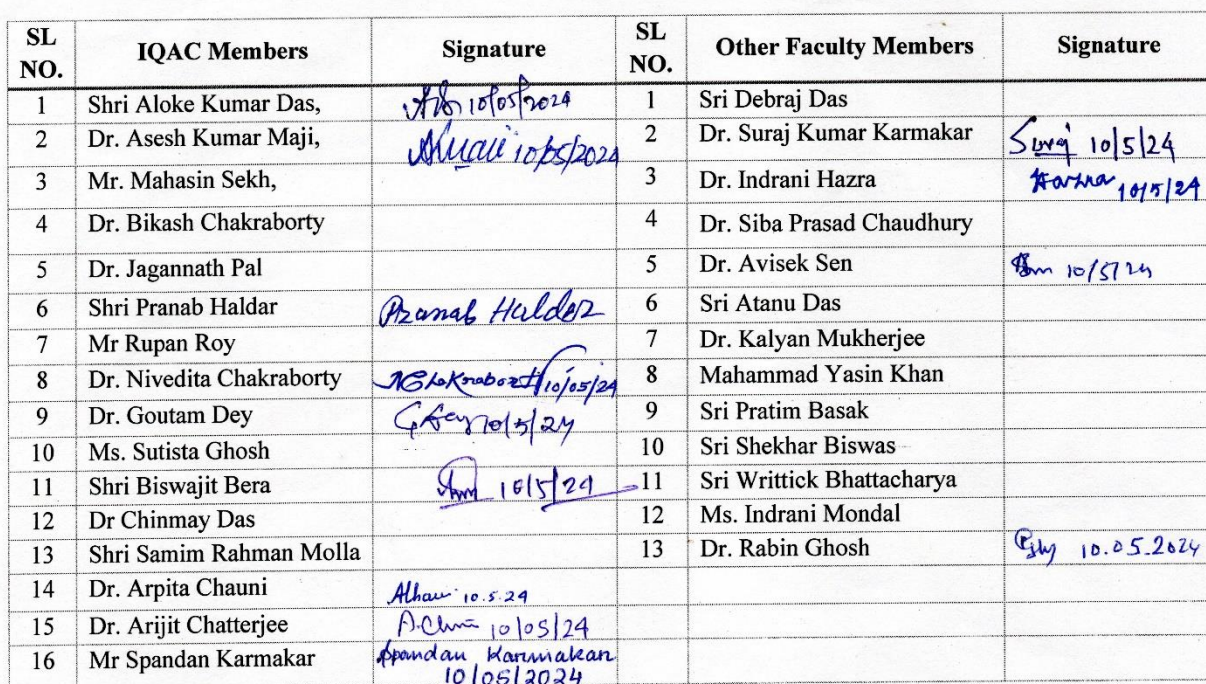 SL NO. IQAC Members Signature SL NO. Other Faculty Members Signature
1 Shri Aloke Kumar Das, 10/05/2024 1 Sri Debraj Das
2 Dr. Asesh Kumar Maji, 10/05/2024 2 Dr. Suraj Kumar Karmakar Suraj 10/5/24
3 Mr. Mahasin Sekh, 3 Dr. Indrani Hazra Hazra 10/5/24
4 Dr. Bikash Chakraborty 4 Dr. Siba Prasad Chaudhury
5 Dr. Jagannath Pal 5 Dr. Avisek Sen 10/5/24
6 Shri Pranab Haldar Pranab Halder 6 Sri Atanu Das
7 Mr Rupan Roy 7 Dr. Kalyan Mukherjee
8 Dr. Nivedita Chakraborty NChakraborty 10/05/24 8 Mahammad Yasin Khan
9 Dr. Goutam Dey GDey 10/5/24 9 Sri Pratim Basak
10 Ms. Sutista Ghosh 10 Sri Shekhar Biswas
11 Shri Biswajit Bera 10/5/24 11 Sri Writtick Bhattacharya
12 Dr Chinmay Das 12 Ms. Indrani Mondal
13 Shri Samim Rahman Molla 13 Dr. Rabin Ghosh 10.05.2024
14 Dr. Arpita Chauni 10.5.24
15 Dr. Arijit Chatterjee 10/05/24
16 Mr Spandan Karmakar Spandan Karmakar
10/05/2024